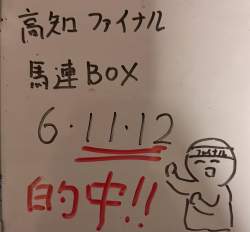 高知ファイナル
馬連BOX
6・11・12
的中!!
ファイナル